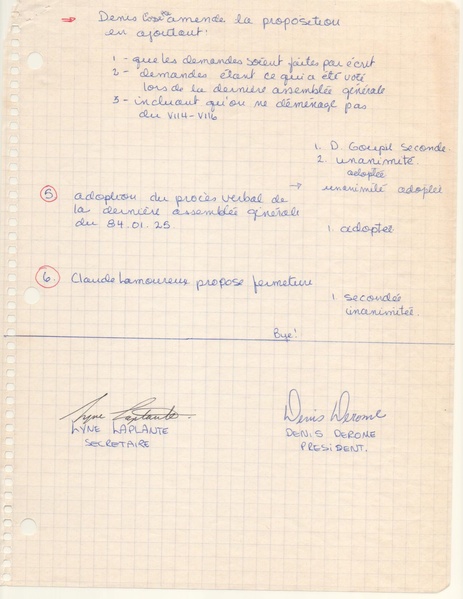 → Denis amende la proposition
en ajoutant:
1 - que les demandes soient faites par écrit
2 - demandes étant ce qui a été voté
lors de la dernière assemblée générale
3 - incluant qu'on ne déménage pas
du V114-V116
1. D. Goupil seconde.
2. unanimité
adoptée
→ unanimité adoptée
5. adoption du procès verbal de
la dernière assemblée générale
du 84.01.25.
1. adopter
6. Claude Lamoureux propose fermeture
1 secondée
unanimitée.
Bye!
Lyne Laplante
LYNE LAPLANTE
SECRETAIRE
Denis Derome
DENIS DEROME
PRESIDENT.